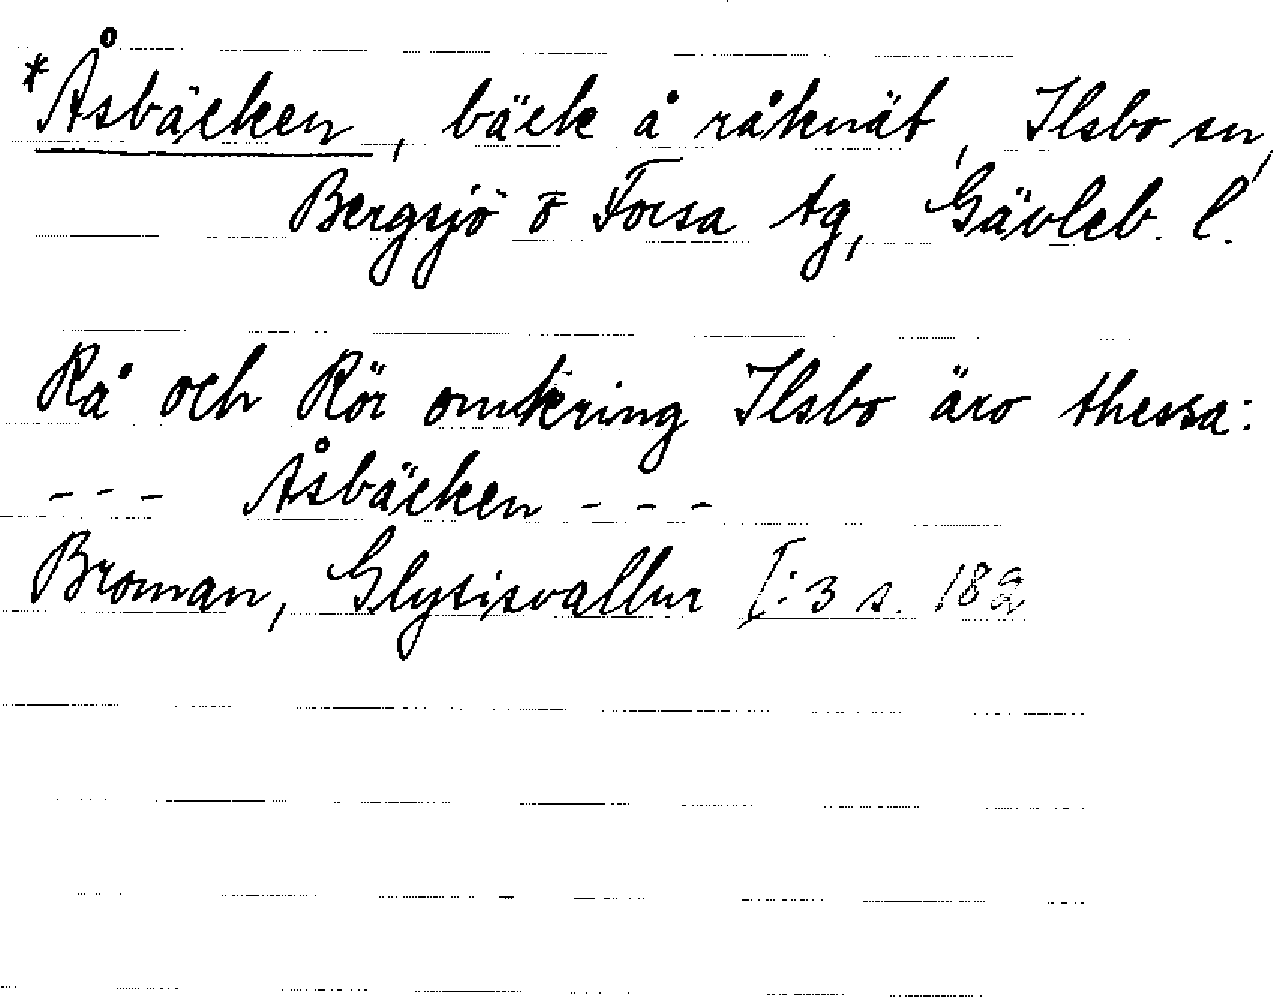 *Åsbäcken, bäck å råknät, Ilsbo sn,
Bergsjö o Forsa tg, Gävleb. l.
Rå och Rör omkring Ilsbo äro thessa:
--- Åsbäcken ---
Broman, Glysisvallur I:3 s. 182